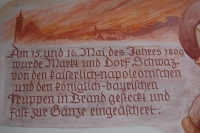 Am 15. und 16. Mai des Jahres 1809
wurde Markt und Dorf Schwaz
von den kaiserlich-napoleonischen
und den königlich-bayrischen
Truppen in Brand gesteckt und
fast zur Gänze eingeäschert.